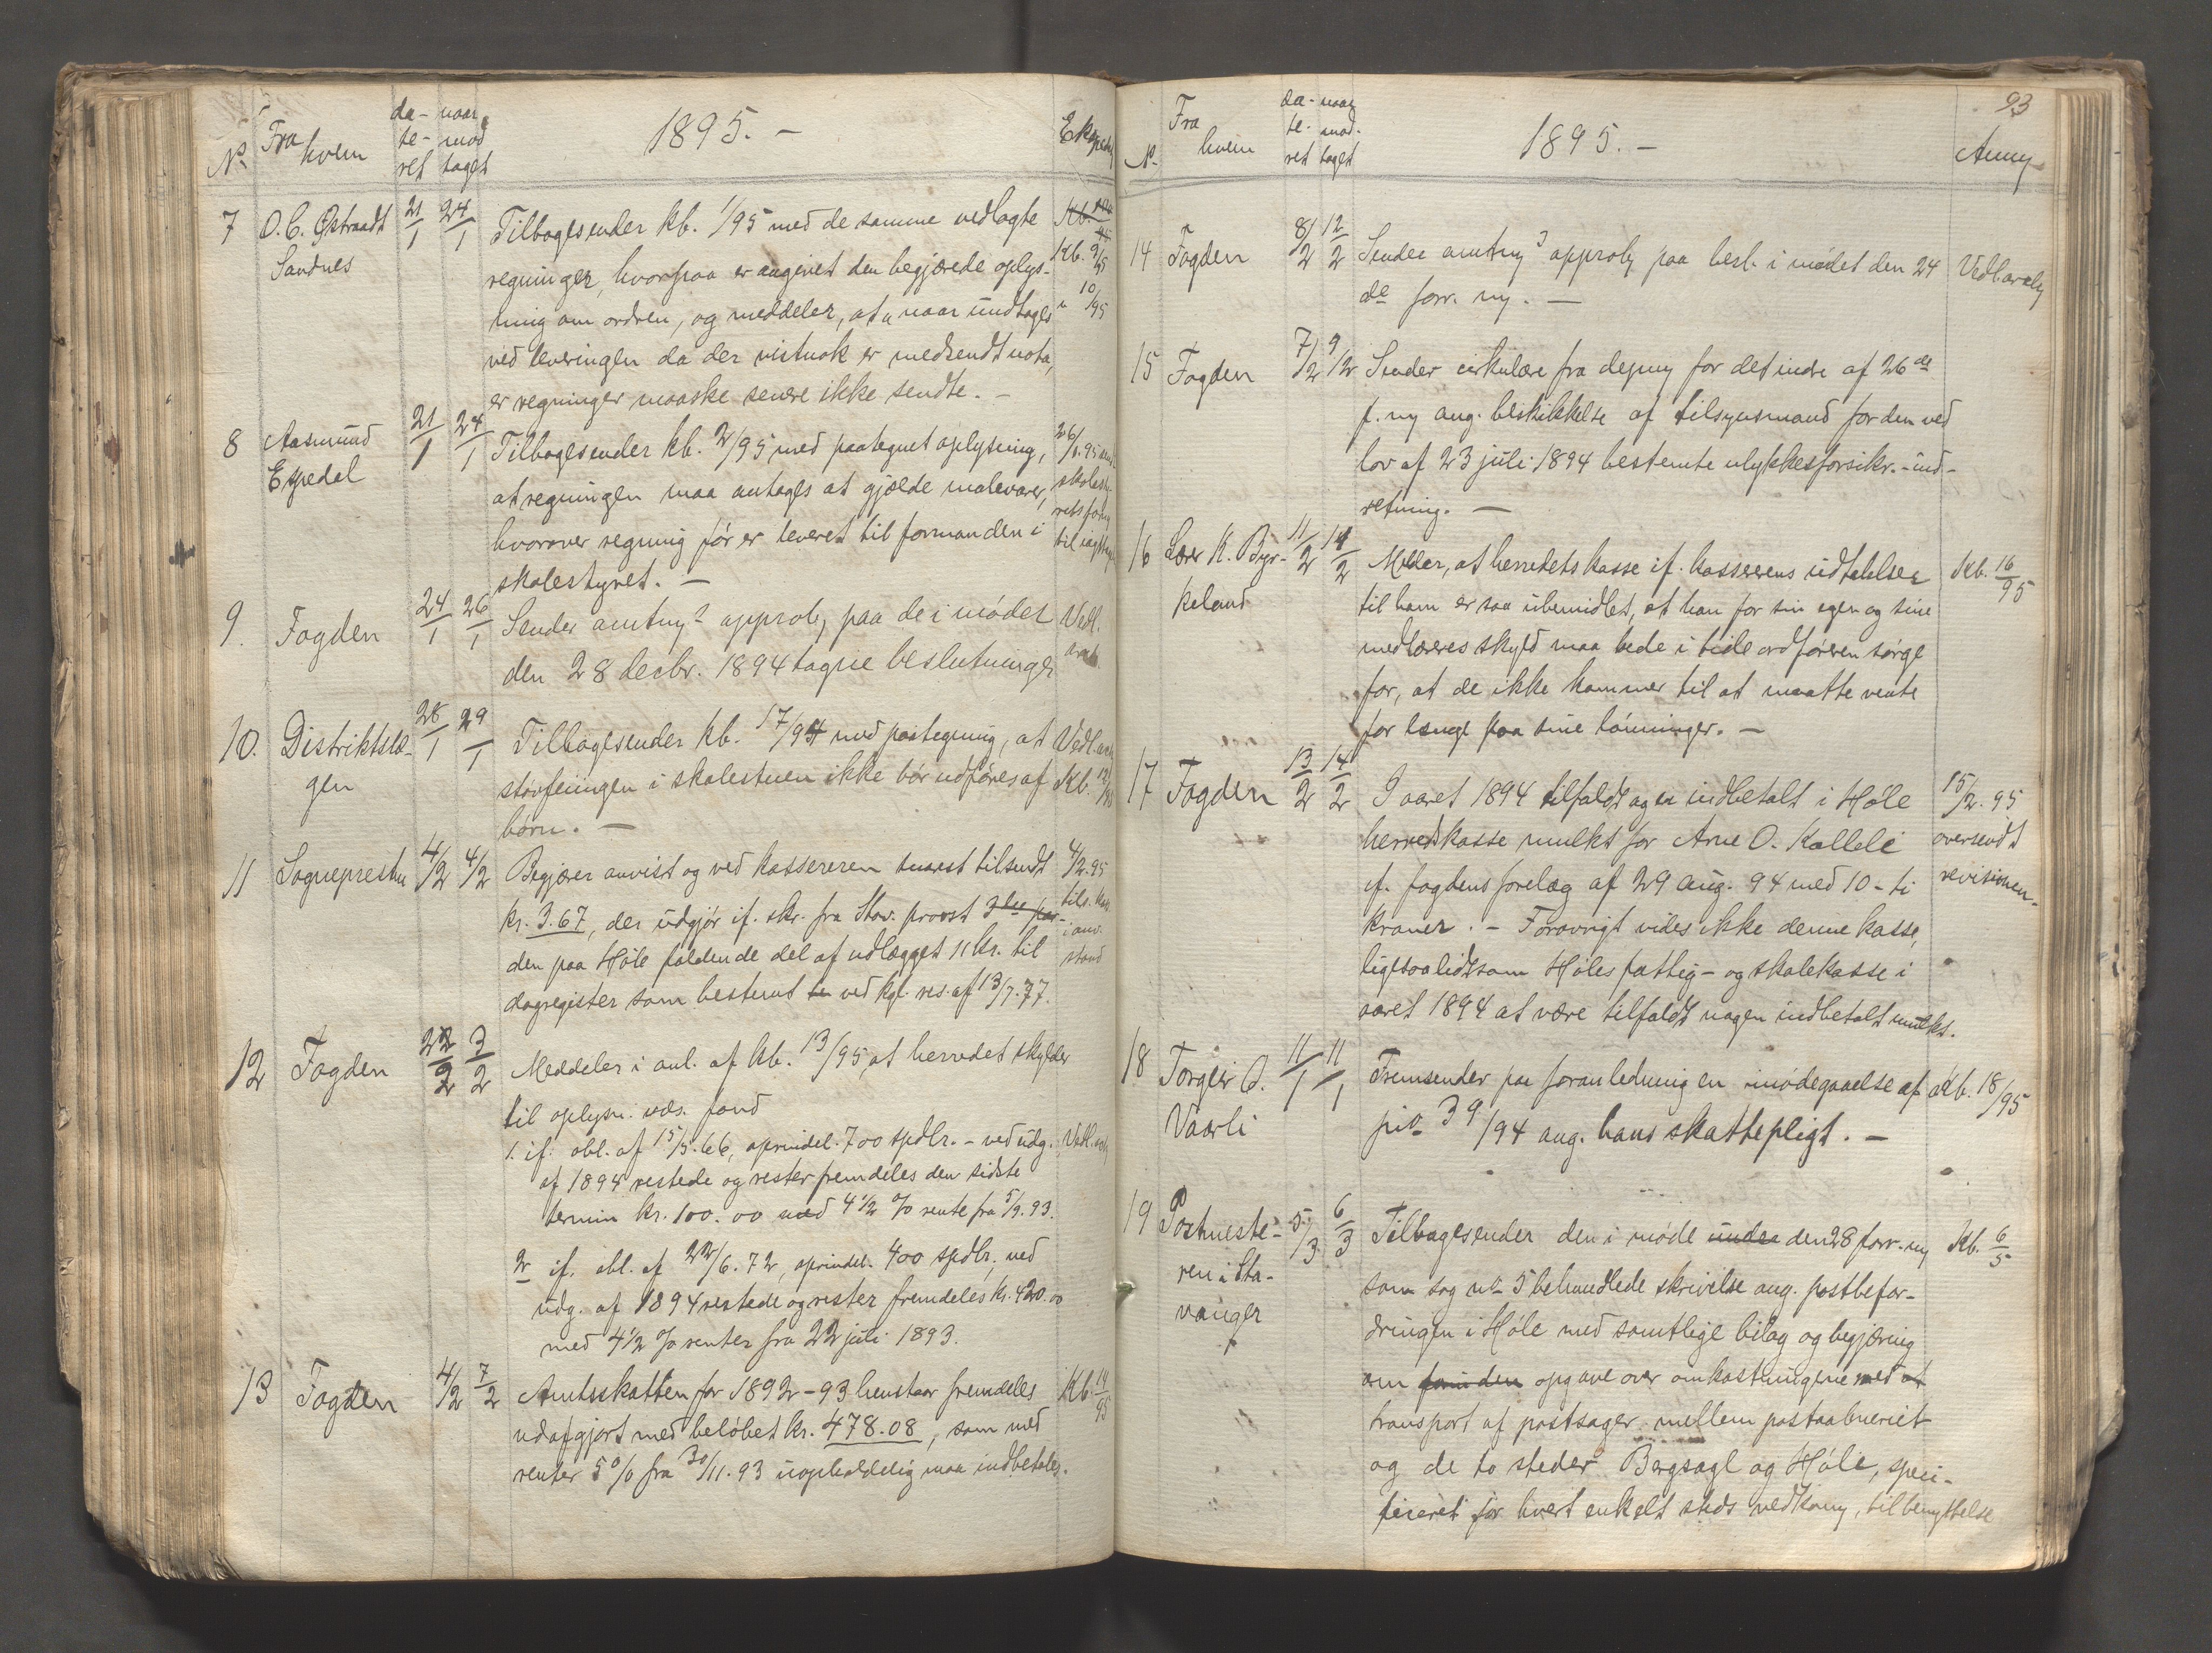 1895. –
No Fra hvem da-te-ret naar mod taget
7 O. C. Østraadt Sandnes 21/1 24/1 Tilbagesender kb. 1/95 med de samme vedlagte
regninger, hvorpaa er angivet den begjærede oplys-
ning om ordren, og meddeler, at naar undtages
ved leveringen da der vistnok er medsendt nota,
er regninger maaske senere ikke sendte. –
Kb. 9/95
" 10/95
8 Aasmund Espedal 21/1 24/1 Tilbagesender kb. 2/95 med paategnet oplysning,
at regningen maa antages at gjælde malevarer,
hvorover regning før er leveret til formanden i
skolestyret. –
26/1.95
9. Fogden 24/1 26/1 Sender amtmds approb. paa de i mødet
den 28 decbr. 1894 tagne beslutninger
Vedl.
10. Distriktslæ-
gen 28/1 29/1 Tilbagesender kb. 17/94 med paategning, at
støvfeiingen i skolestuen ikke bør udføres af
børn. –
Kb. 12/95
11 Sognepresten 4/2 4/2 Begjærer anvist og ved kassereren snarest tilsendt
kr. 3.67, der udgjør if. skr. fra Stav. provst
den paa Høle faldende del af udlægget 11 kr. til
dagregister som bestemt ved kgl. res. af 13/7.77.
4/2.95
tils. kas.
i anv.
stand
12 Fogden 22/2 3/2 Meddeler i anl. af kb. 13/95, at herredet skylder
til oplysn. væs. fond
1. if. obl. af 15/5.66, oprindel. 700 spdlr. – ved udg.
af 1894 restede og rester fremdeles den sidste
termin kr. 100.00 med 4 1/2 % rente fra 5/9.93.
2 if. obl. af 22/6.72, oprindel. 400 spdlr, ved
udg. af 1894 restede og rester fremdeles kr. 420.00
med 4 1/2 % renter fra 22 juli 1893.
13 Fogden 4/2 7/2 Amtsskatten for 1892–93 henstaar fremdeles
uafgjort med beløbet kr. 478.08, som med
renter 5 % fra 30/11.93 uopholdelig maa indbetales.
Kb. 14/95
93
1895. –
No. Fra hvem da-te-ret naar mod-taget Anm
14 Fogden 8/2 12/2 Sender amtms approb paa besl. i mødet den 24
de forr. m. –
15 Fogden 7/2 9/2 Sender cirkulære fra depm for det indre af 26de
f. m ang. beskikkelse af tilsynsmand for den ved
lov af 23 juli 1894 bestemte ulykkesforsikr.-ind-
retning. –
16 Lærer K. Byr-
keland 11/2 14/2 Melder, at herredets kasse if. kassererens udtalelser
til ham er saa ubemidlet, at han for sin egen og sine
medlæreres skyld maa bede i tide ordføreren sørge
for, at de ikke kommer til at maatte vente
for længe paa sine lønninger. –
Kb. 16/95
17 Fogden 13/2 14/2 I aaret 1894 tilfaldt og er indbetalt i Høle
herredskasse mulkt for Arne O. Kalleli
if. fogdens forelæg af 29 aug. 94 med 10 – ti
kroner. – Forøvrigt vides ikke denne kasse,
ligesaalidt som Høles fattig- og skolekasse i
aaret 1894 at være tilfaldt nogen indbetalt mulkt.
15/2.95
oversendt
revisionen.
18 Torgeir O.
Vaarli 11/1 11/1 Fremsender paa foranledning en imødegaaelse af
39/94 ang. hans skattepligt. –
Kb. 18/95
19 Postmeste-
ren i Sta-
vanger 5/3 6/3 Tilbagesender den i møde under den 28 forr. m
som sag no 5 behandlede skrivelse ang. postbefor-
dringen i Høle med samtlige bilag og begjæring
om opgave over omkostningene med
transport af postsager mellem postaabneriet
og de to steder Bergsagl og Høle, speci-
ficeret for hvert enkelt steds vedkom, til benyttelse
Kb. 6/5